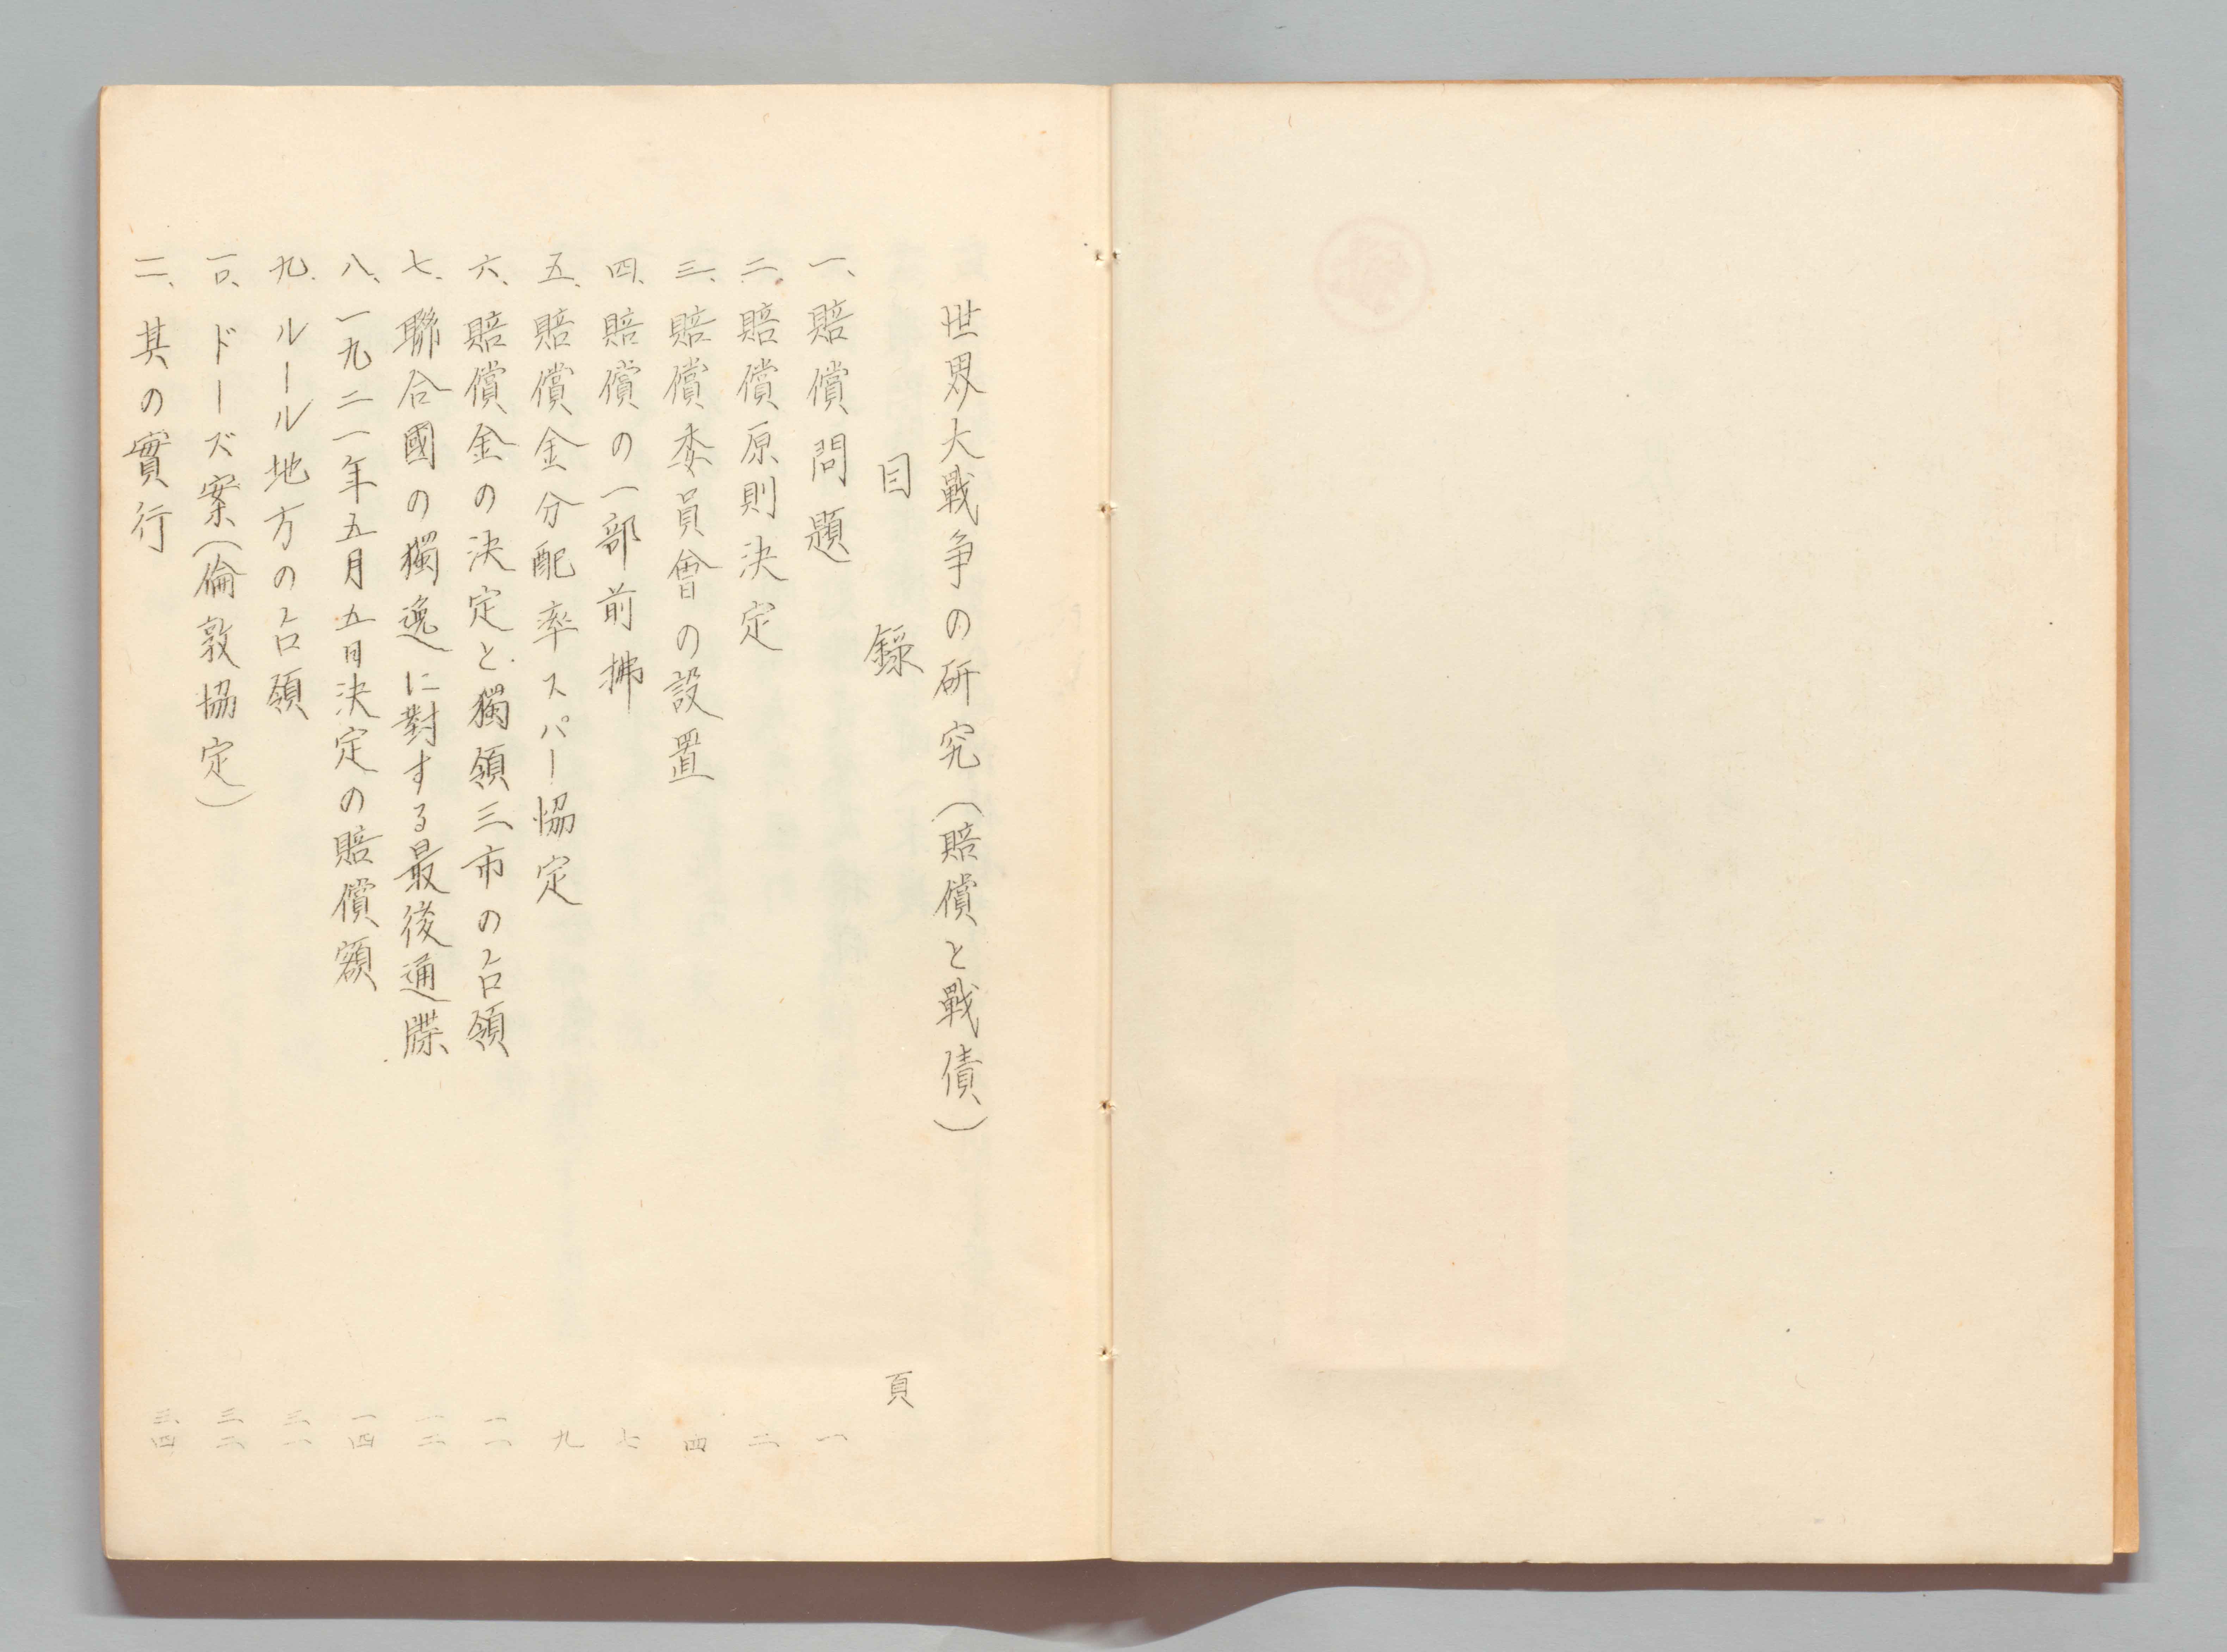 世界大戰争の研究(賠償と戰債)
目錄 頁
一、賠償問題 一
二、賠償原則決定 二
三、賠償委員會の設置 四
四、賠償の一部前拂 七
五、賠償金分配率スパー協定 九
六、賠償金の決定と獨領三市の占領 一一
七、聯合國の獨逸に對する最後通牒 一二
八、一九二一年五月五日決定の賠償額 一四
九、ルール地方の占領 三一
一〇、ドーズ案(倫敦協定) 三二
一一、其の實行 三四